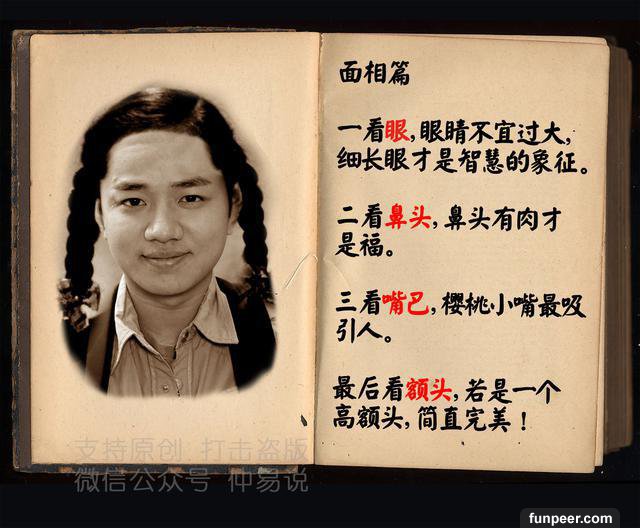 面相篇
一看眼,眼睛不宜过大,
细长眼才是智慧的象征。
二看鼻头,鼻头有肉才
是福。
三看嘴巴,樱桃小嘴最吸
引人。
最后看额头,若是一个
高额头,简直完美!
支持原创 打击盗版
微信公众号 仲易说
funpeer.com